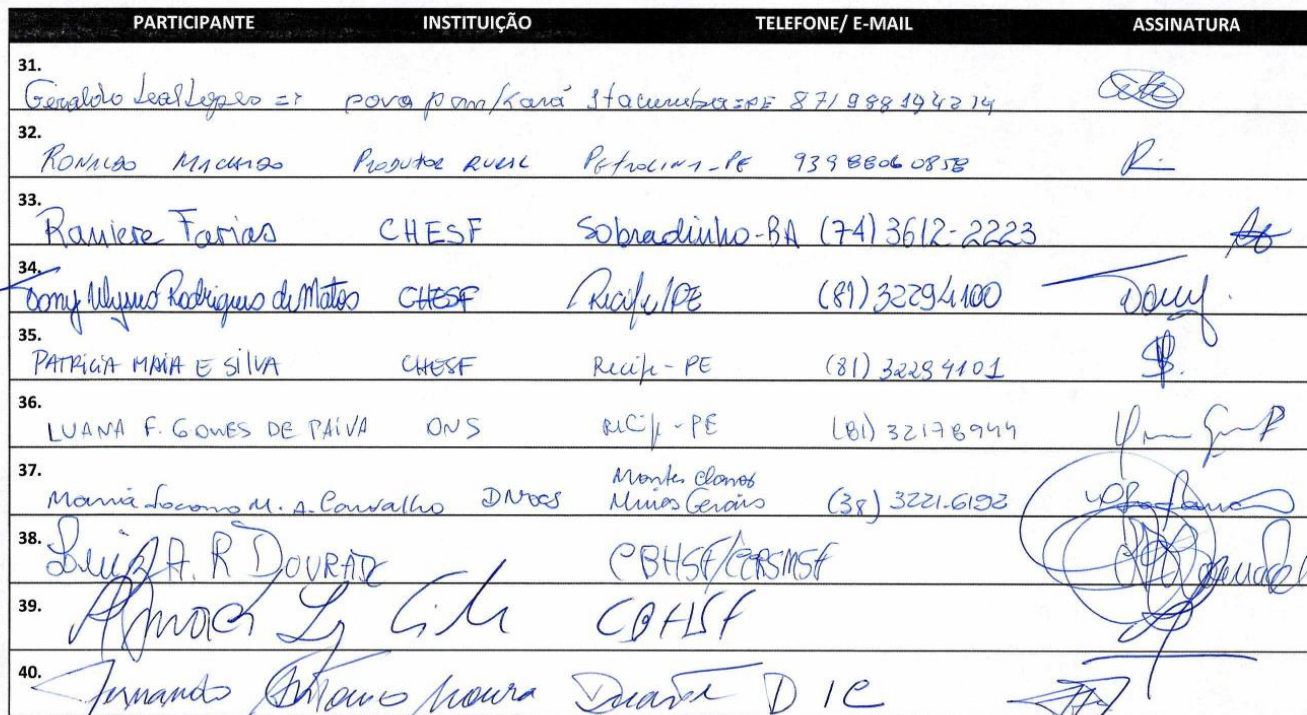 PARTICIPANTE INSTITUIÇÃO TELEFONE/ E-MAIL ASSINATURA
31.
Geraldo Leal Lopes => povo pam/Kará Itacuruba=PE 87/988194214
32.
RONALDO MACHADO PRODUTOR RURAL PETROLINA-PE 939 8806 0858
33.
Raniere Farias CHESF Sobradinho-BA (74) 3612-2223
34.
Tony Ulysses Rodrigues de Matos CHESF Recife/PE (81) 32294100 Tony
35.
PATRICIA MAIA E SILVA CHESF Recife-PE (81) 32294101
36.
LUANA F. GOMES DE PAIVA ONS RECIFE-PE (81) 32178944
37.
Maria Socorro M. A. Carvalho DNOCS Montes Claros
Minas Gerais (38) 3221.6192
38.
Luiz A. R DOURADO CBHSF
39.
CBHSF
40.
Fernando Antonio Moura Duarte D I C